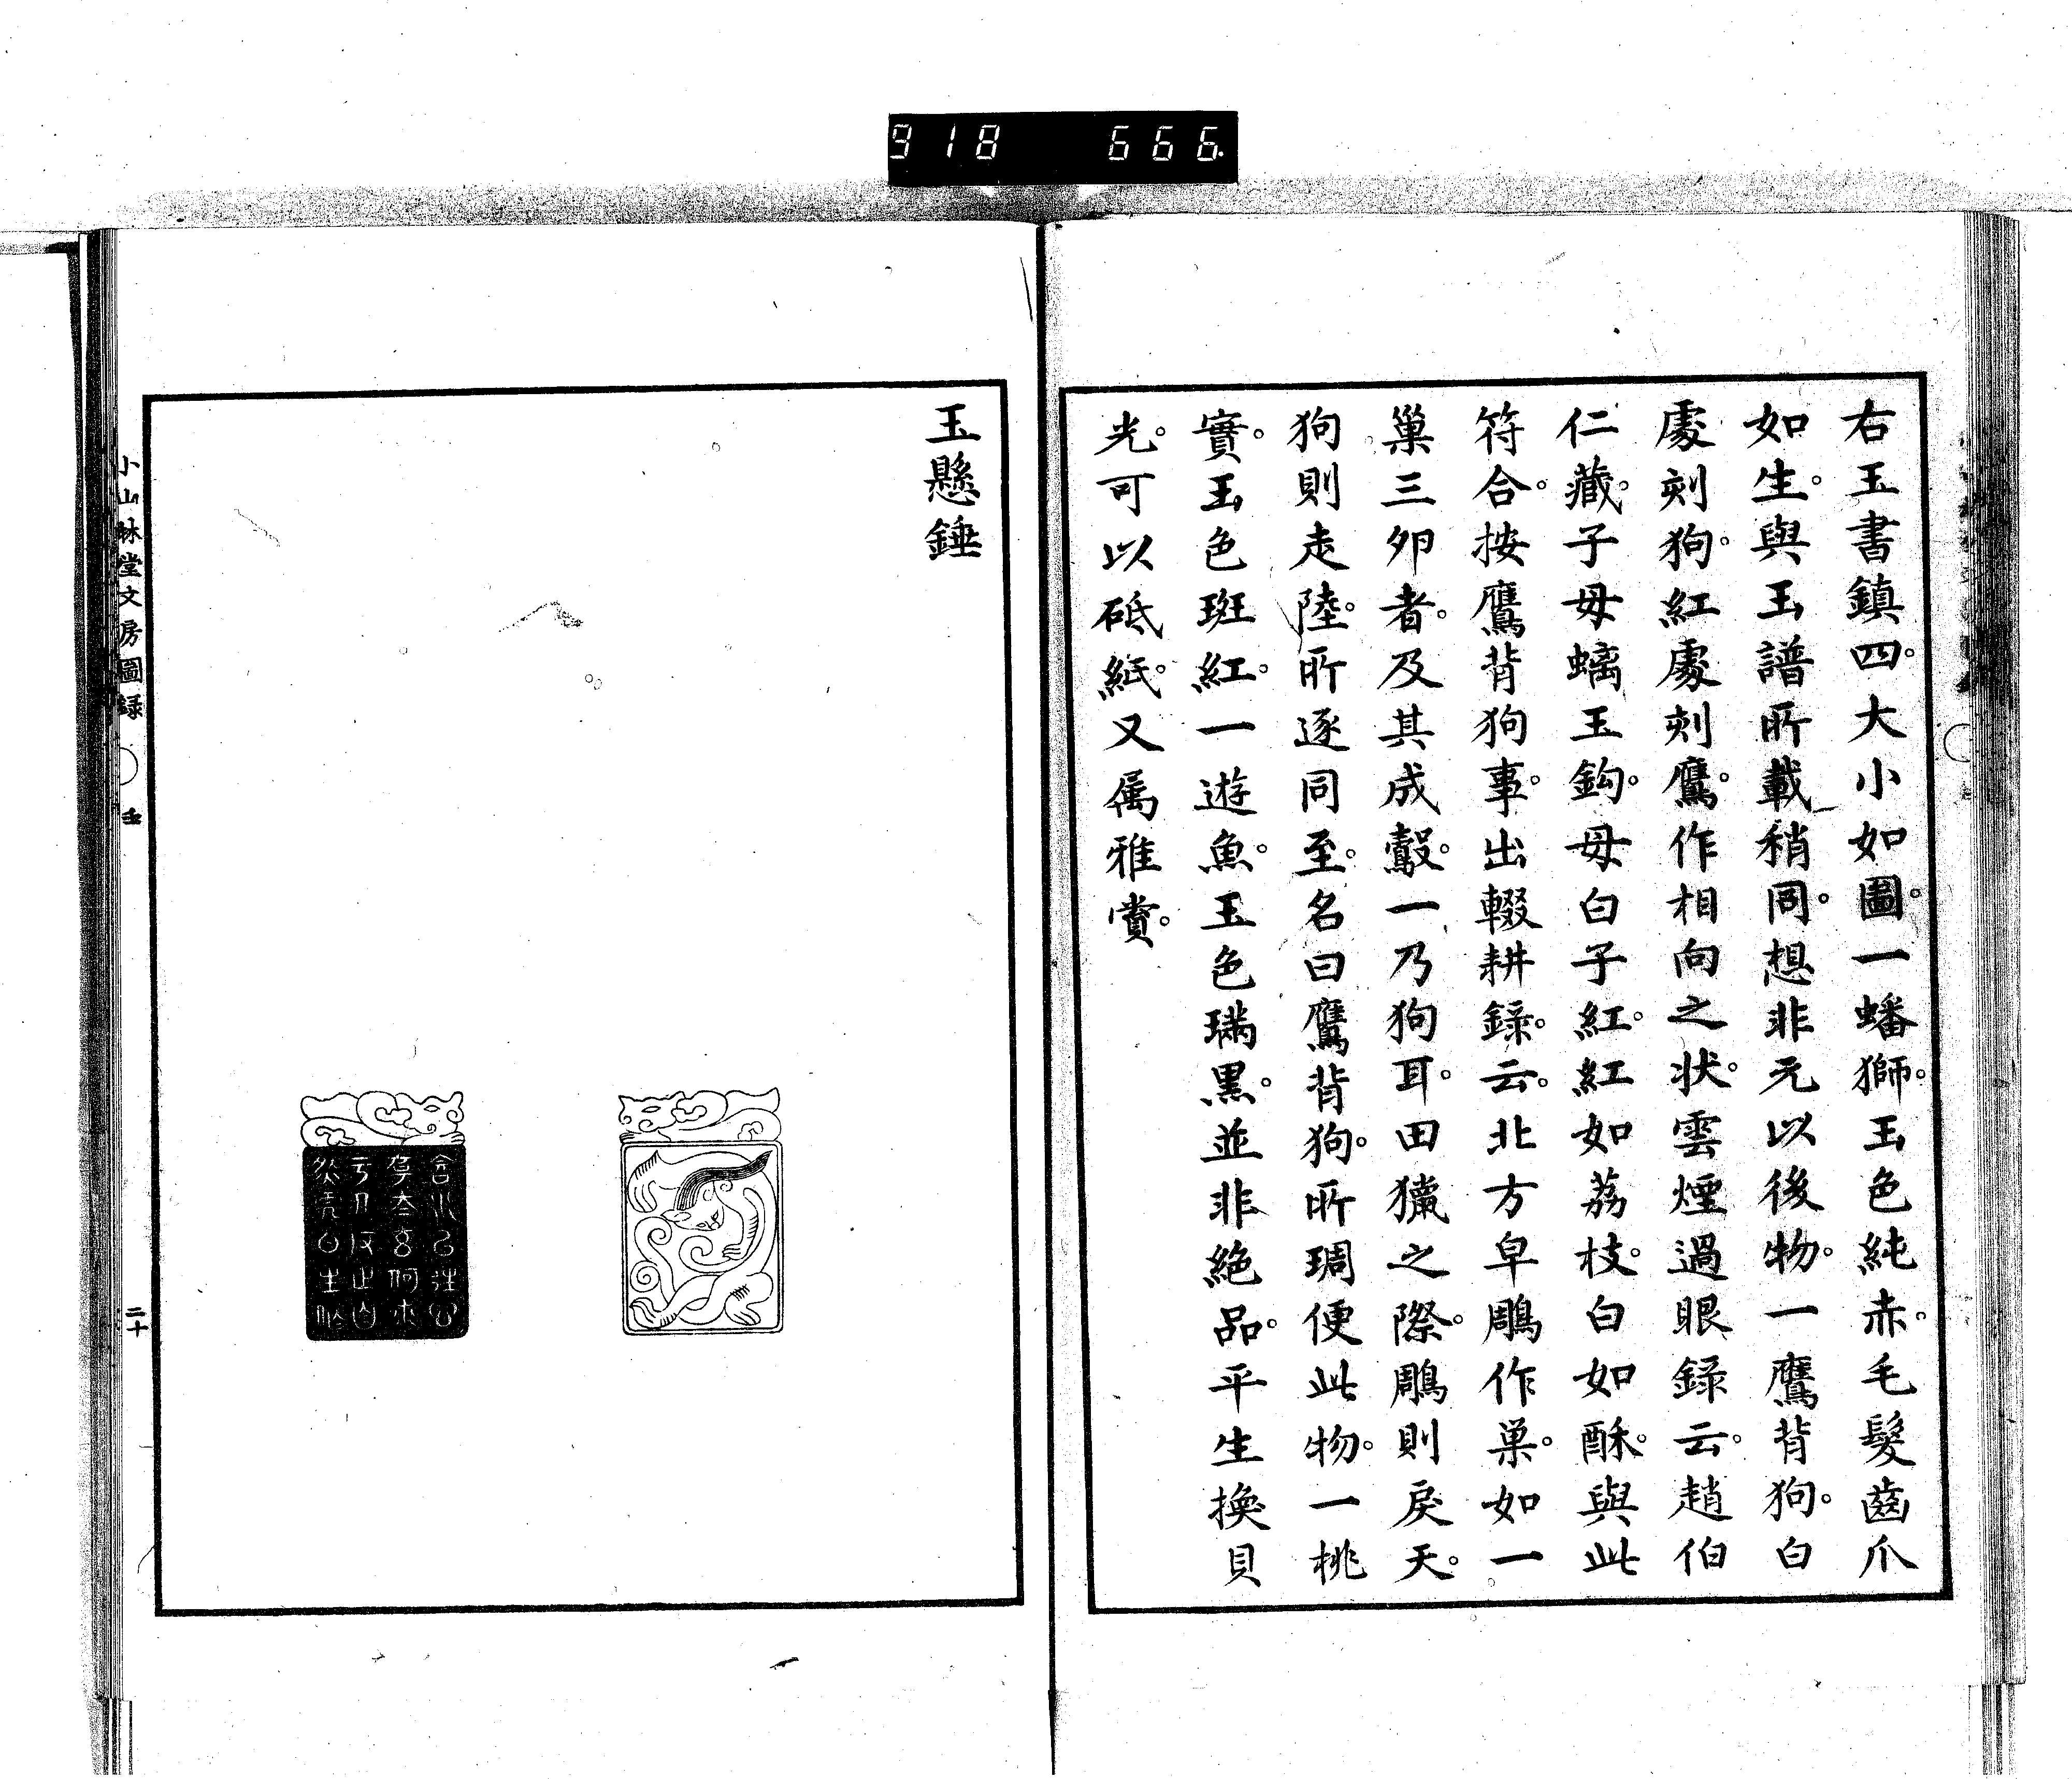 918 666.
右玉書鎮四。大小如圖。一蟠獅。玉色純赤。毛髮齒爪
如生。與玉譜所載稍同。想非元以後物。一鷹背狗。白
處刻狗。紅處刻鷹。作相向之狀。雲煙過眼錄云。趙伯
仁藏。子母螭玉鈎。母白子紅。紅如荔枝。白如酥。與此
符合。按鷹背狗事。出輟耕錄。云。北方皁鵰作巢。如一
巢三夘者。及其成鷇。一乃狗耳。田獵之際。鵰則戾天。
狗則走陸。所逐同至。名曰鷹背狗。所琱便此物。一桃
實。玉色斑紅。一遊魚。玉色璊黒。並非絶品。平生換貝
光。可以砥紙。又属雅賞。
玉懸錘
小山林堂文房圖録
二十